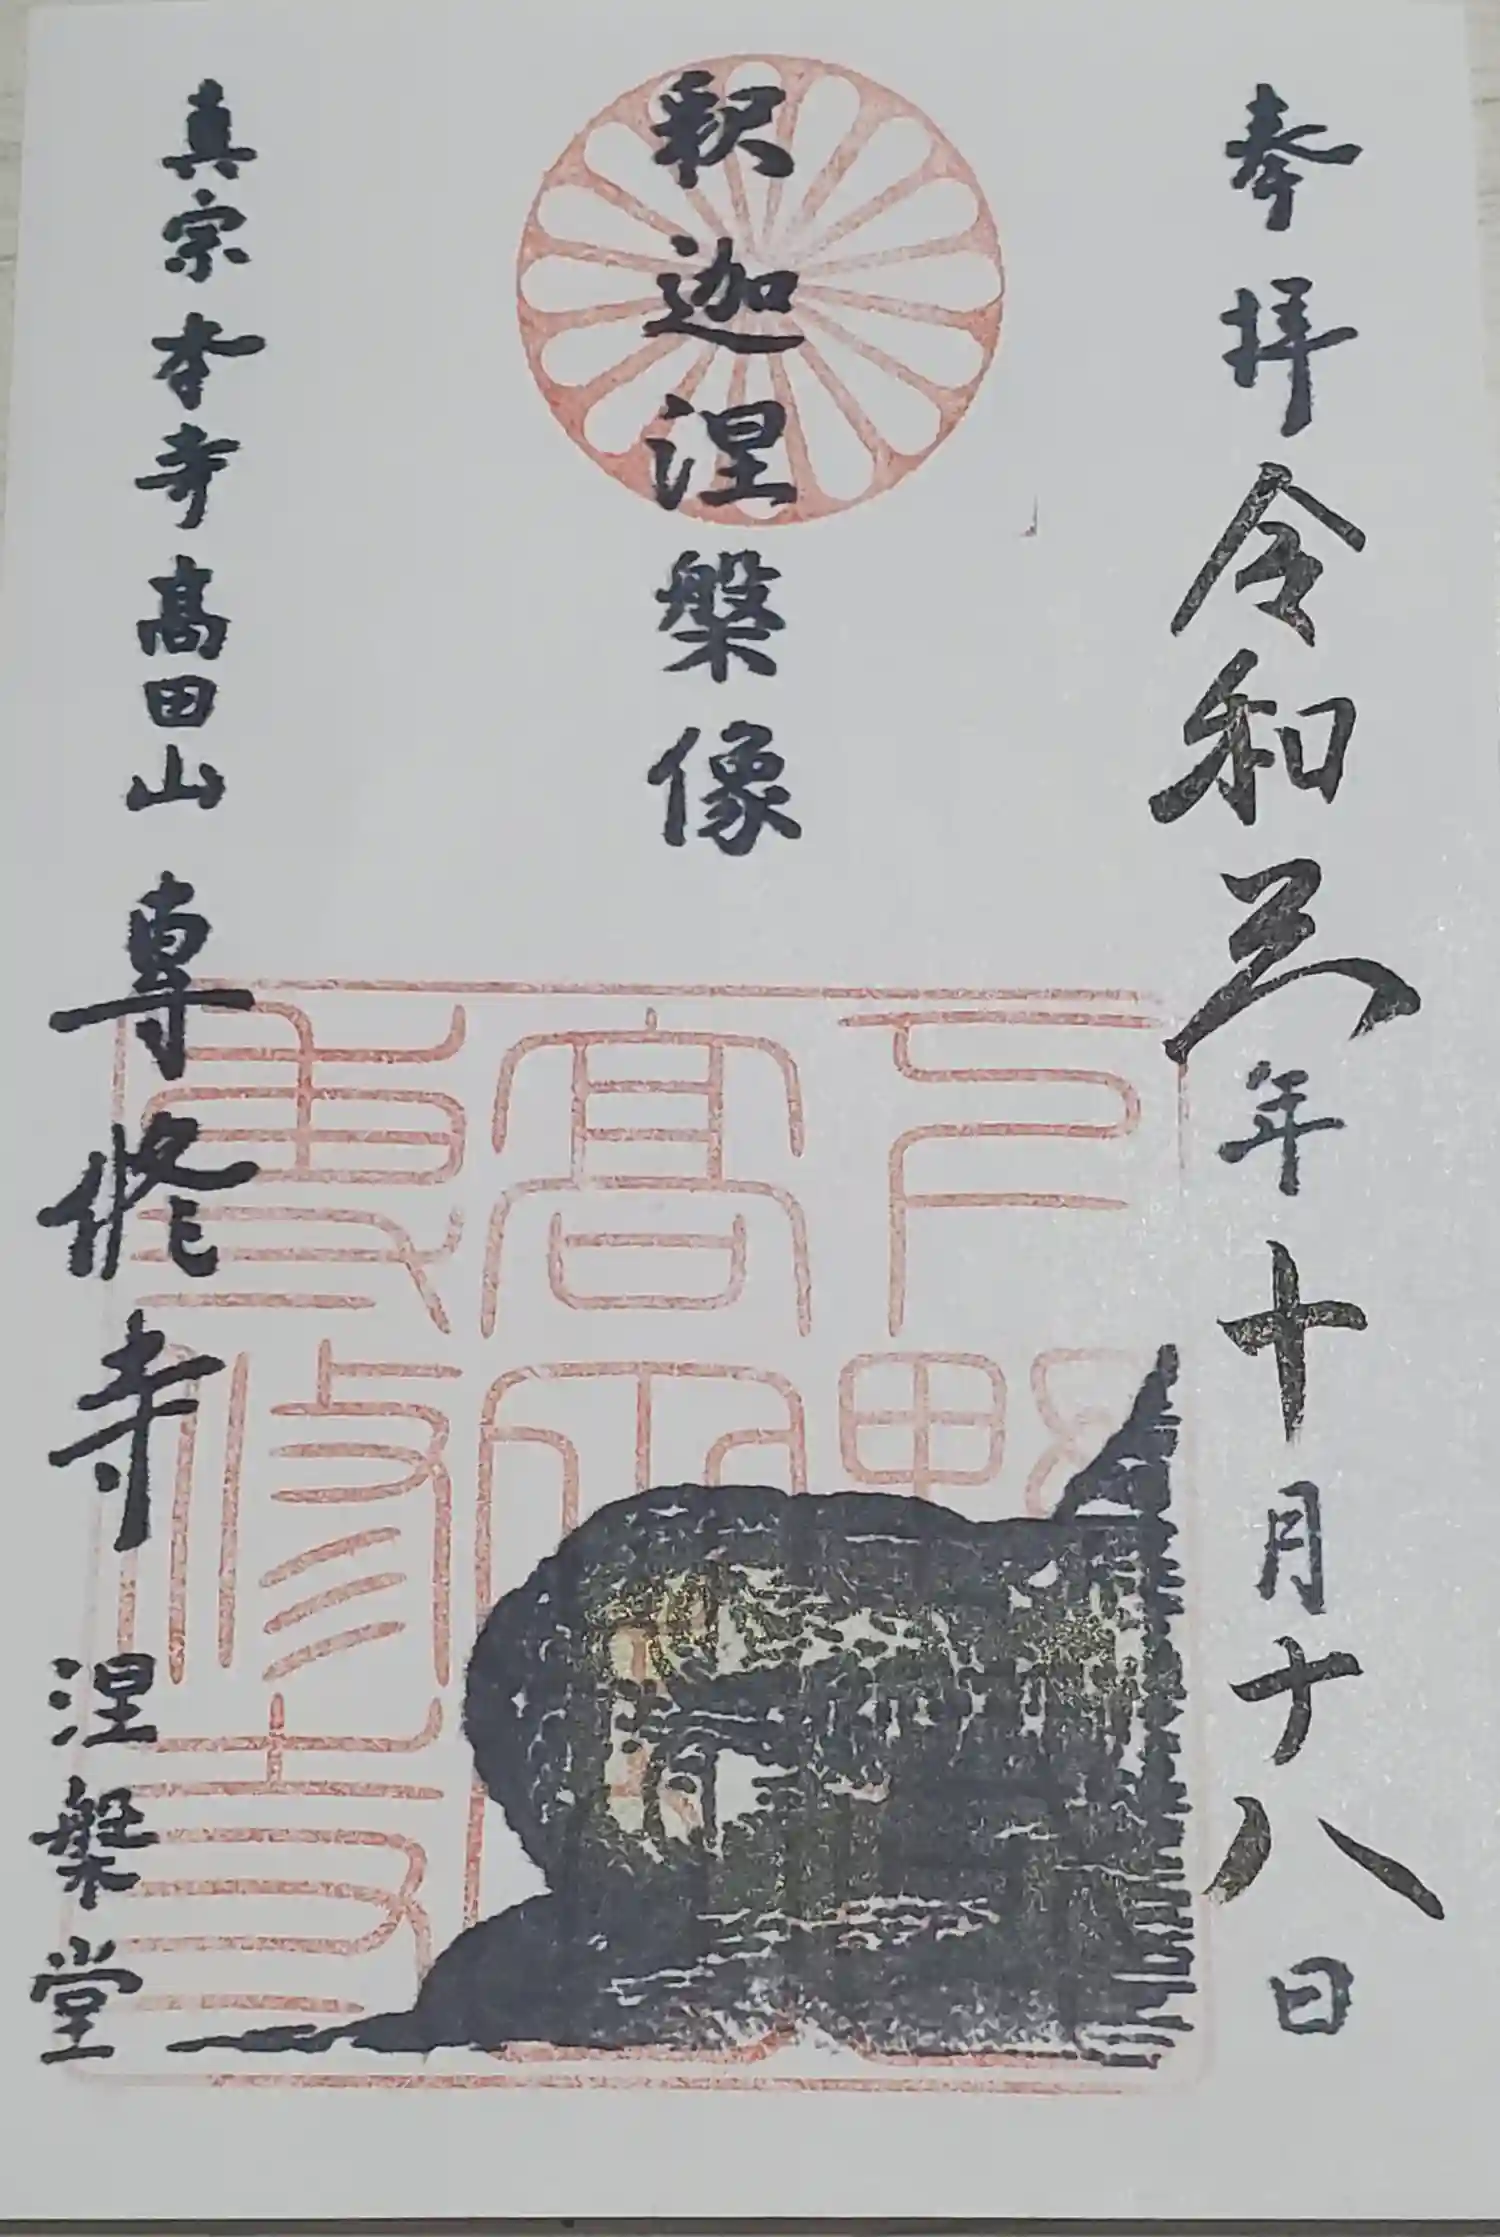 奉拝 令和三年十月十八日
釈迦涅槃像
真宗本寺高田山 専修寺 涅槃堂
下野
高
專修寺